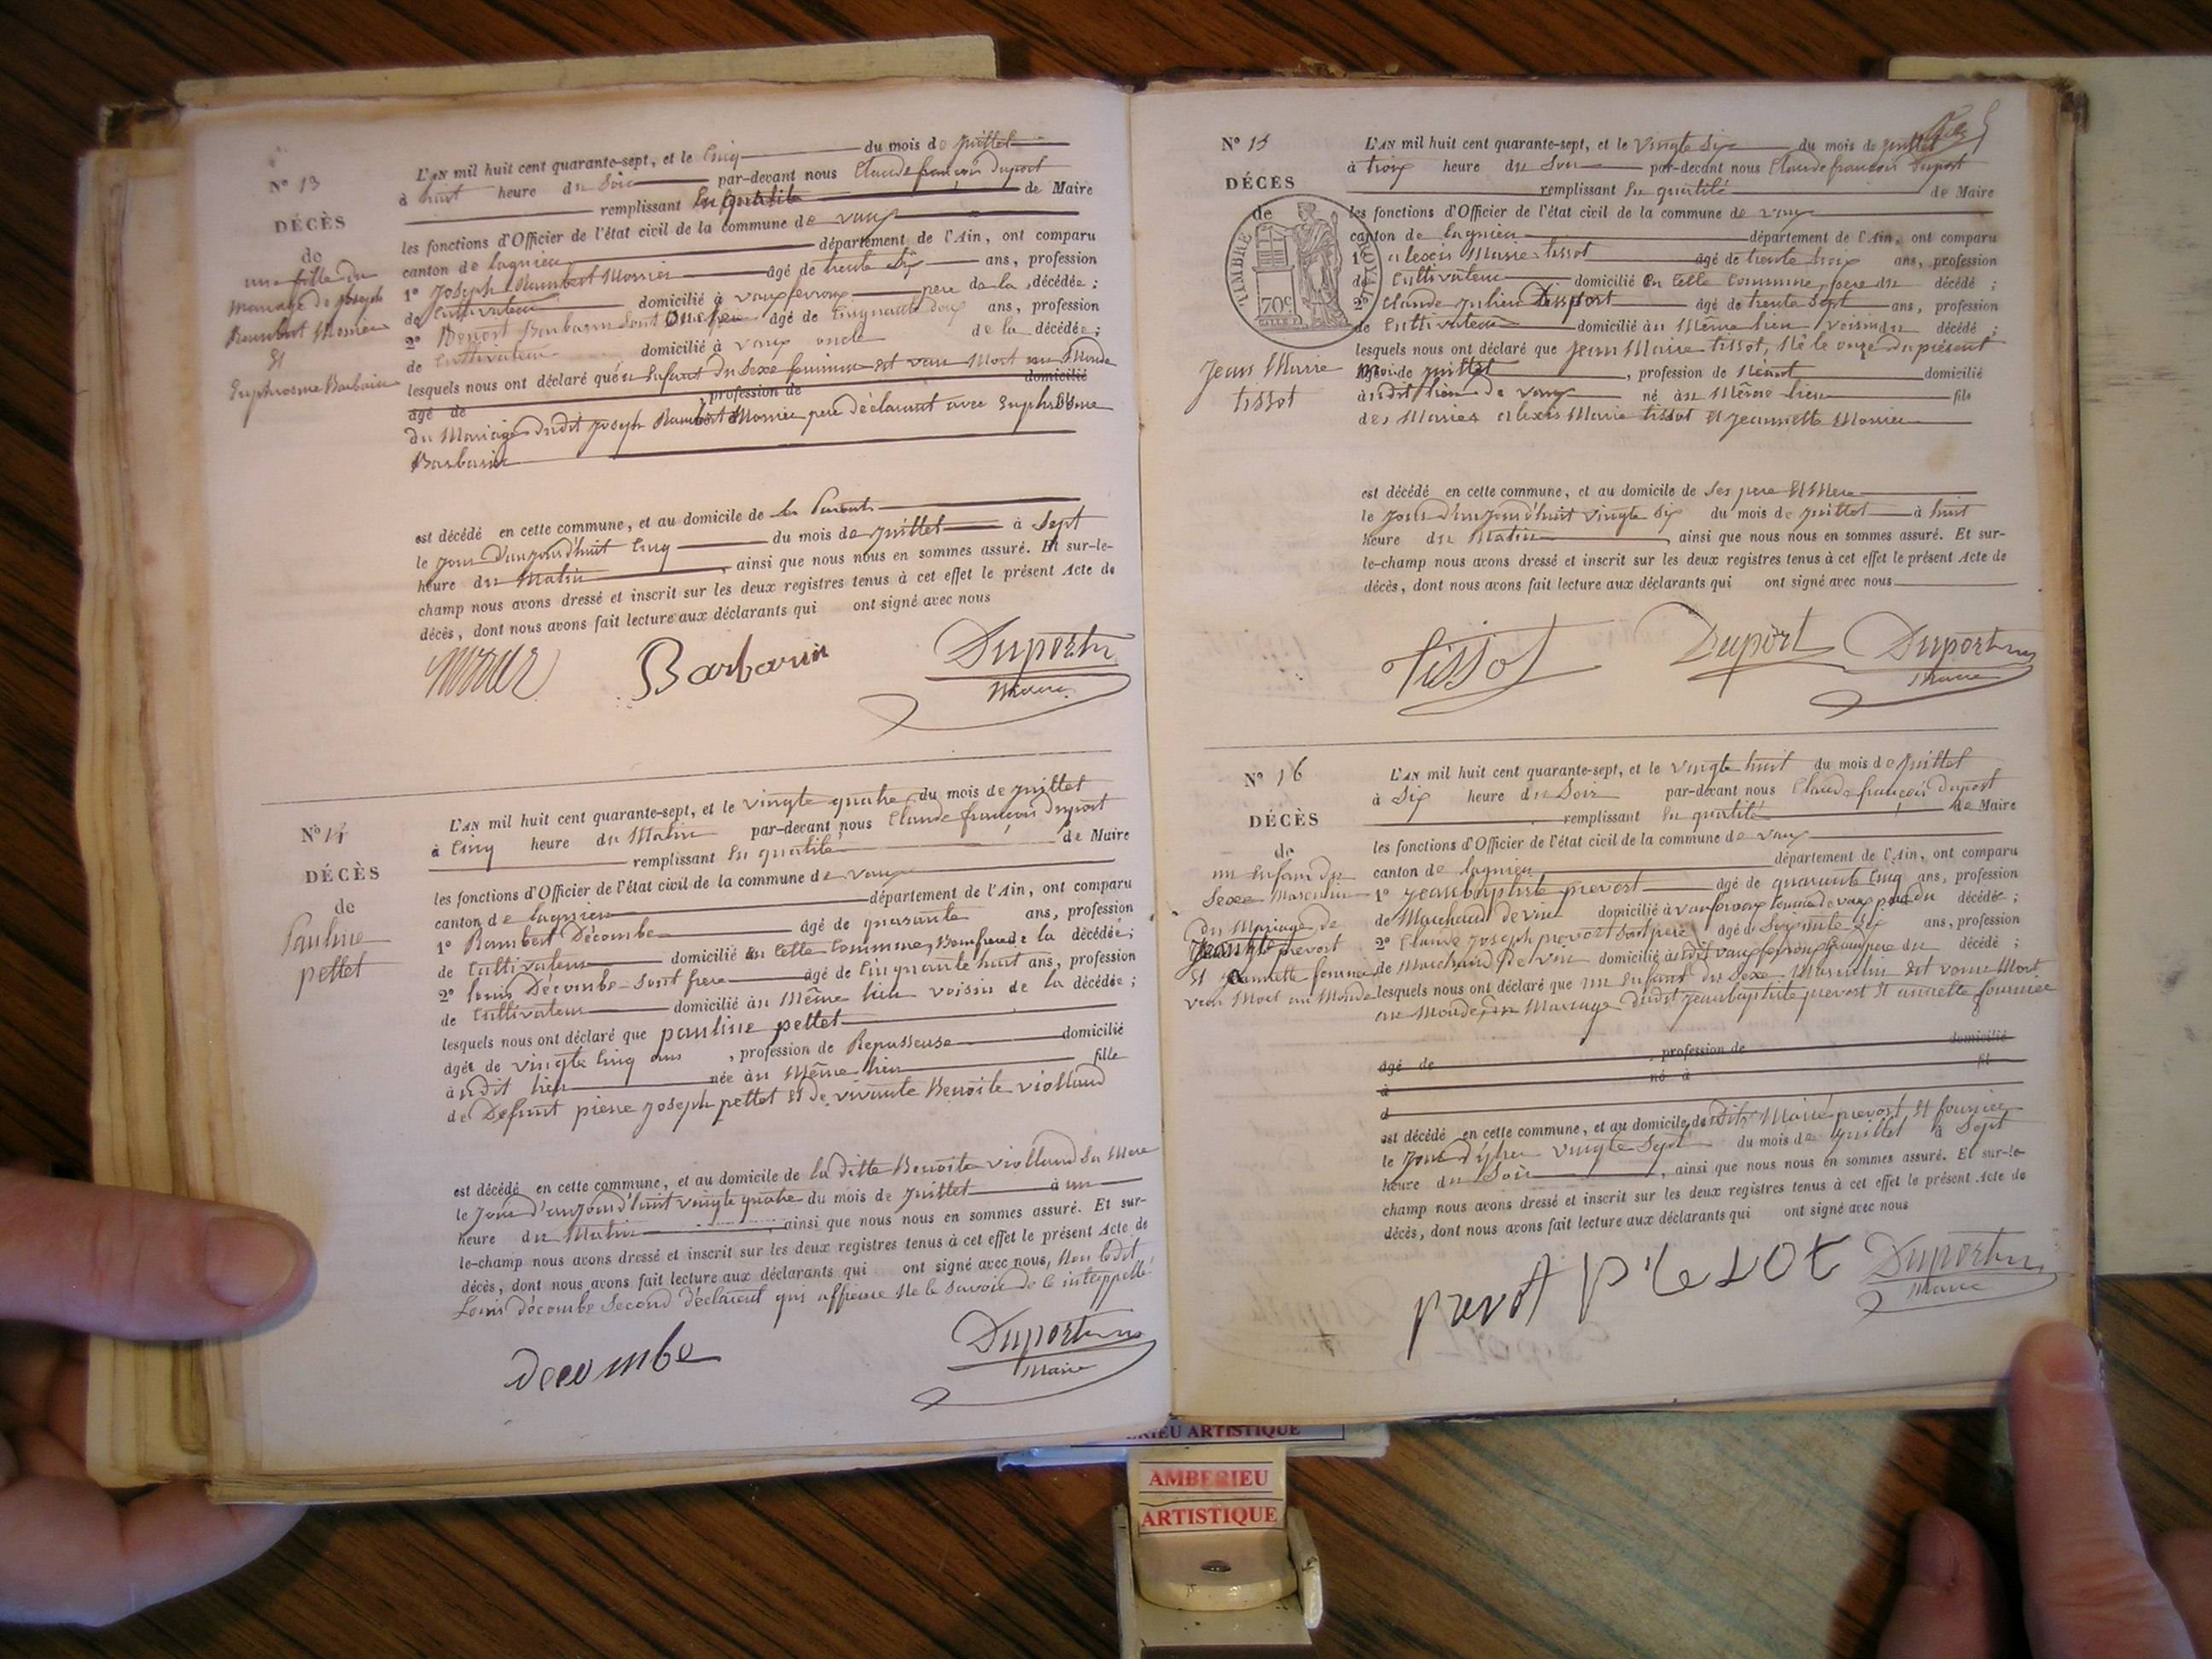 Nº 13
DÉCÈS
de
une fille du
mariage de Joseph
Rambert Monier
Et
Euphrosine Barbarin
L'AN mil huit cent quarante-sept, et le Cinq du mois de juillet
à huit heure du Soir par-devant nous Claude françois Duport
remplissant En qualité de Maire
les fonctions d'Officier de l'état civil de la commune de vaux
canton de lagnieu département de l'Ain, ont comparu
1º Joseph Rambert Monier âgé de trente Six ans, profession
de Cultivateur domicilié à vauxfevroux pere de la décédée ;
2º Benoit Barbarin âgé de Cinquante deux ans, profession
de Cultivateur domicilié à vaux oncle de la décédée ;
lesquels nous ont déclaré qu'un Enfant du Sexe feminin Est venu Mort au Monde
âgé de profession de domicilié
du Mariage dudit Joseph Rambert Monier pere déclarant avec Euphrosine
Barbarin
est décédé en cette commune, et au domicile de Parents
le Jour d'aujourd'huit Cinq du mois de juillet à Sept
heure du Matin , ainsi que nous nous en sommes assuré. Et sur-le-
champ nous avons dressé et inscrit sur les deux registres tenus à cet effet le présent Acte de
décès, dont nous avons fait lecture aux déclarants qui ont signé avec nous
Barbarin
Duport
Maire
Nº 14
DÉCÈS
de
Pauline
pettet
L'AN mil huit cent quarante-sept, et le vingte quatre du mois de juillet
à Cinq heure du Matin par-devant nous Claude françois Duport
remplissant En qualité de Maire
les fonctions d'Officier de l'état civil de la commune de vaux
canton de lagnieu département de l'Ain, ont comparu
1º Rambert Décombe âgé de quarante ans, profession
de Cultivateur domicilié En Cette Commune, Beaufrere de la décédée;
2º Louis Décombe Sont frere âgé de Cinquante huit ans, profession
de Cultivateur domicilié au Même lieu voisin de la décédée ;
lesquels nous ont déclaré que pauline pettet
âgée de vingte Cinq ans , profession de Repasseuse domicilié
audit lieu née au Même lieu fille
de Defunt pierre Joseph pettet Et de vivante Benoite viollaud
est décédé en cette commune, et au domicile de la ditte Benoite viollaud Sa Mere
le Jour d'aujourd'huit vingte quatre du mois de juillet à un
heure du Matin ainsi que nous nous en sommes assuré. Et sur-
le-champ nous avons dressé et inscrit sur les deux registres tenus à cet effet le présent Acte de
décès, dont nous avons fait lecture aux déclarants qui ont signé avec nous, Non ledit
Louis décombe Second déclarant qui affirme Ne le Savoir de le interppellé
decombe
Duport
Maire
Nº 15
DÉCÈS
de
TIMBRE ROYAL
70c
Jean Marie
tissot
L'AN mil huit cent quarante-sept, et le vingte Six du mois de juillet
à troix heure du Soir par-devant nous Claude francois Duport
remplissant En qualité de Maire
les fonctions d'Officier de l'état civil de la commune de vaux
canton de lagnieu département de l'Ain, ont comparu
1º alexis Marie tissot âgé de trente troix ans, profession
de Cultivateur domicilié En Cette Commune, pere du décédé ;
2º Claude Julien Dupport âgé de trente Sept ans, profession
de Cultivateur domicilié au Même lieu voisin du décédé ;
lesquels nous ont déclaré que Jean Marie tissot, Né le onze du présent
Mois de juillet , profession de Néant domicilié
audit lieu de vaux né au Même lieu fils
des Mariés alexis Marie tissot Et Jeannette Monier
est décédé en cette commune, et au domicile de Ses pere Et Mere
le Jour d'aujourd'huit vingte Six du mois de juillet à huit
heure du Matin , ainsi que nous nous en sommes assuré. Et sur-
le-champ nous avons dressé et inscrit sur les deux registres tenus à cet effet le présent Acte de
décès, dont nous avons fait lecture aux déclarants qui ont signé avec nous
Tissot
Duport
Duport
Maire
Nº 16
DÉCÈS
de
un Enfant du
Sexe Masculin
du Mariage de
prevost
Et annette fournier
venu Mort au Monde
L'AN mil huit cent quarante-sept, et le vingte huit du mois de juillet
à Six heure du Soir par-devant nous Claude françois Duport
remplissant En qualité de Maire
les fonctions d'Officier de l'état civil de la commune de vaux
canton de lagnieu département de l'Ain, ont comparu
1º Jeanbaptiste prevost âgé de quarante Cinq ans, profession
de Marchand de vin domicilié à vauxfevroux Commune de vaux pere du décédé ;
2º Claude Joseph prevost Sont pere âgé de Soixante Six ans, profession
de Marchand de vin domicilié audit vauxfevroux grandpere du décédé ;
lesquels nous ont déclaré que un Enfant du Sexe Masculin Est venu Mort
au Monde, du Mariage dudit Jeanbaptiste prevost Et annette fournier
âgé de profession de domicilié
à né à fil
d
est décédé en cette commune, et au domicile de Dits Mariés prevost Et fournier
le Jour d'yher vingte Sept du mois de juillet à Sept
heure du Soir , ainsi que nous nous en sommes assuré. Et sur-le-
champ nous avons dressé et inscrit sur les deux registres tenus à cet effet le présent Acte de
décès, dont nous avons fait lecture aux déclarants qui ont signé avec nous
prevot
Duport
Maire
ARTISTIQUE
AMBERIEU
ARTISTIQUE